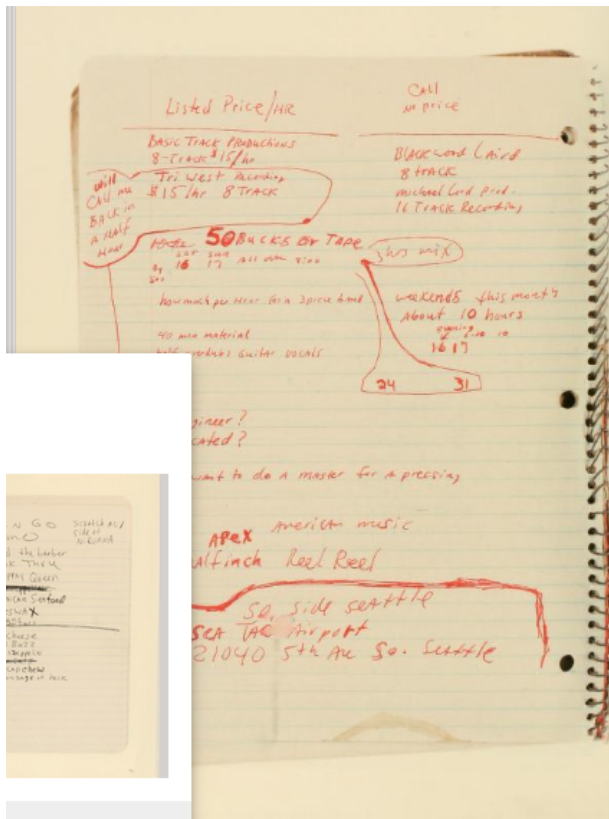 Listed Price/HR
CALL
for price
BASIC TRACK PRODUCTIONS
8-TRACK $15/hr
Tri West Recording
$15/hr 8 TRACK
will
CALL me
BACK in
A HALF
HOUR
BLACKwood Laird
8 track
michael Lord prod.
16 TRACK Recording
50 BUCKS or TAPE
3hrs mix
SAT SUN
16 17 All over
how much per Hour for a 3 piece band
weekends this month
About 10 hours
evening
16 17
40 min material
guitar vocals
24 31
gineer?
cated?
want to do a master for a pressing
APEX American music
alf inch Reel Reel
So. side SeATTle
SEA TAC Airport
21040 5th Av So. Seattle
N GO
side of
NIRVANA
d the barber
k Thru
Queen
Seafood
SWAX
Cheese
Buzz